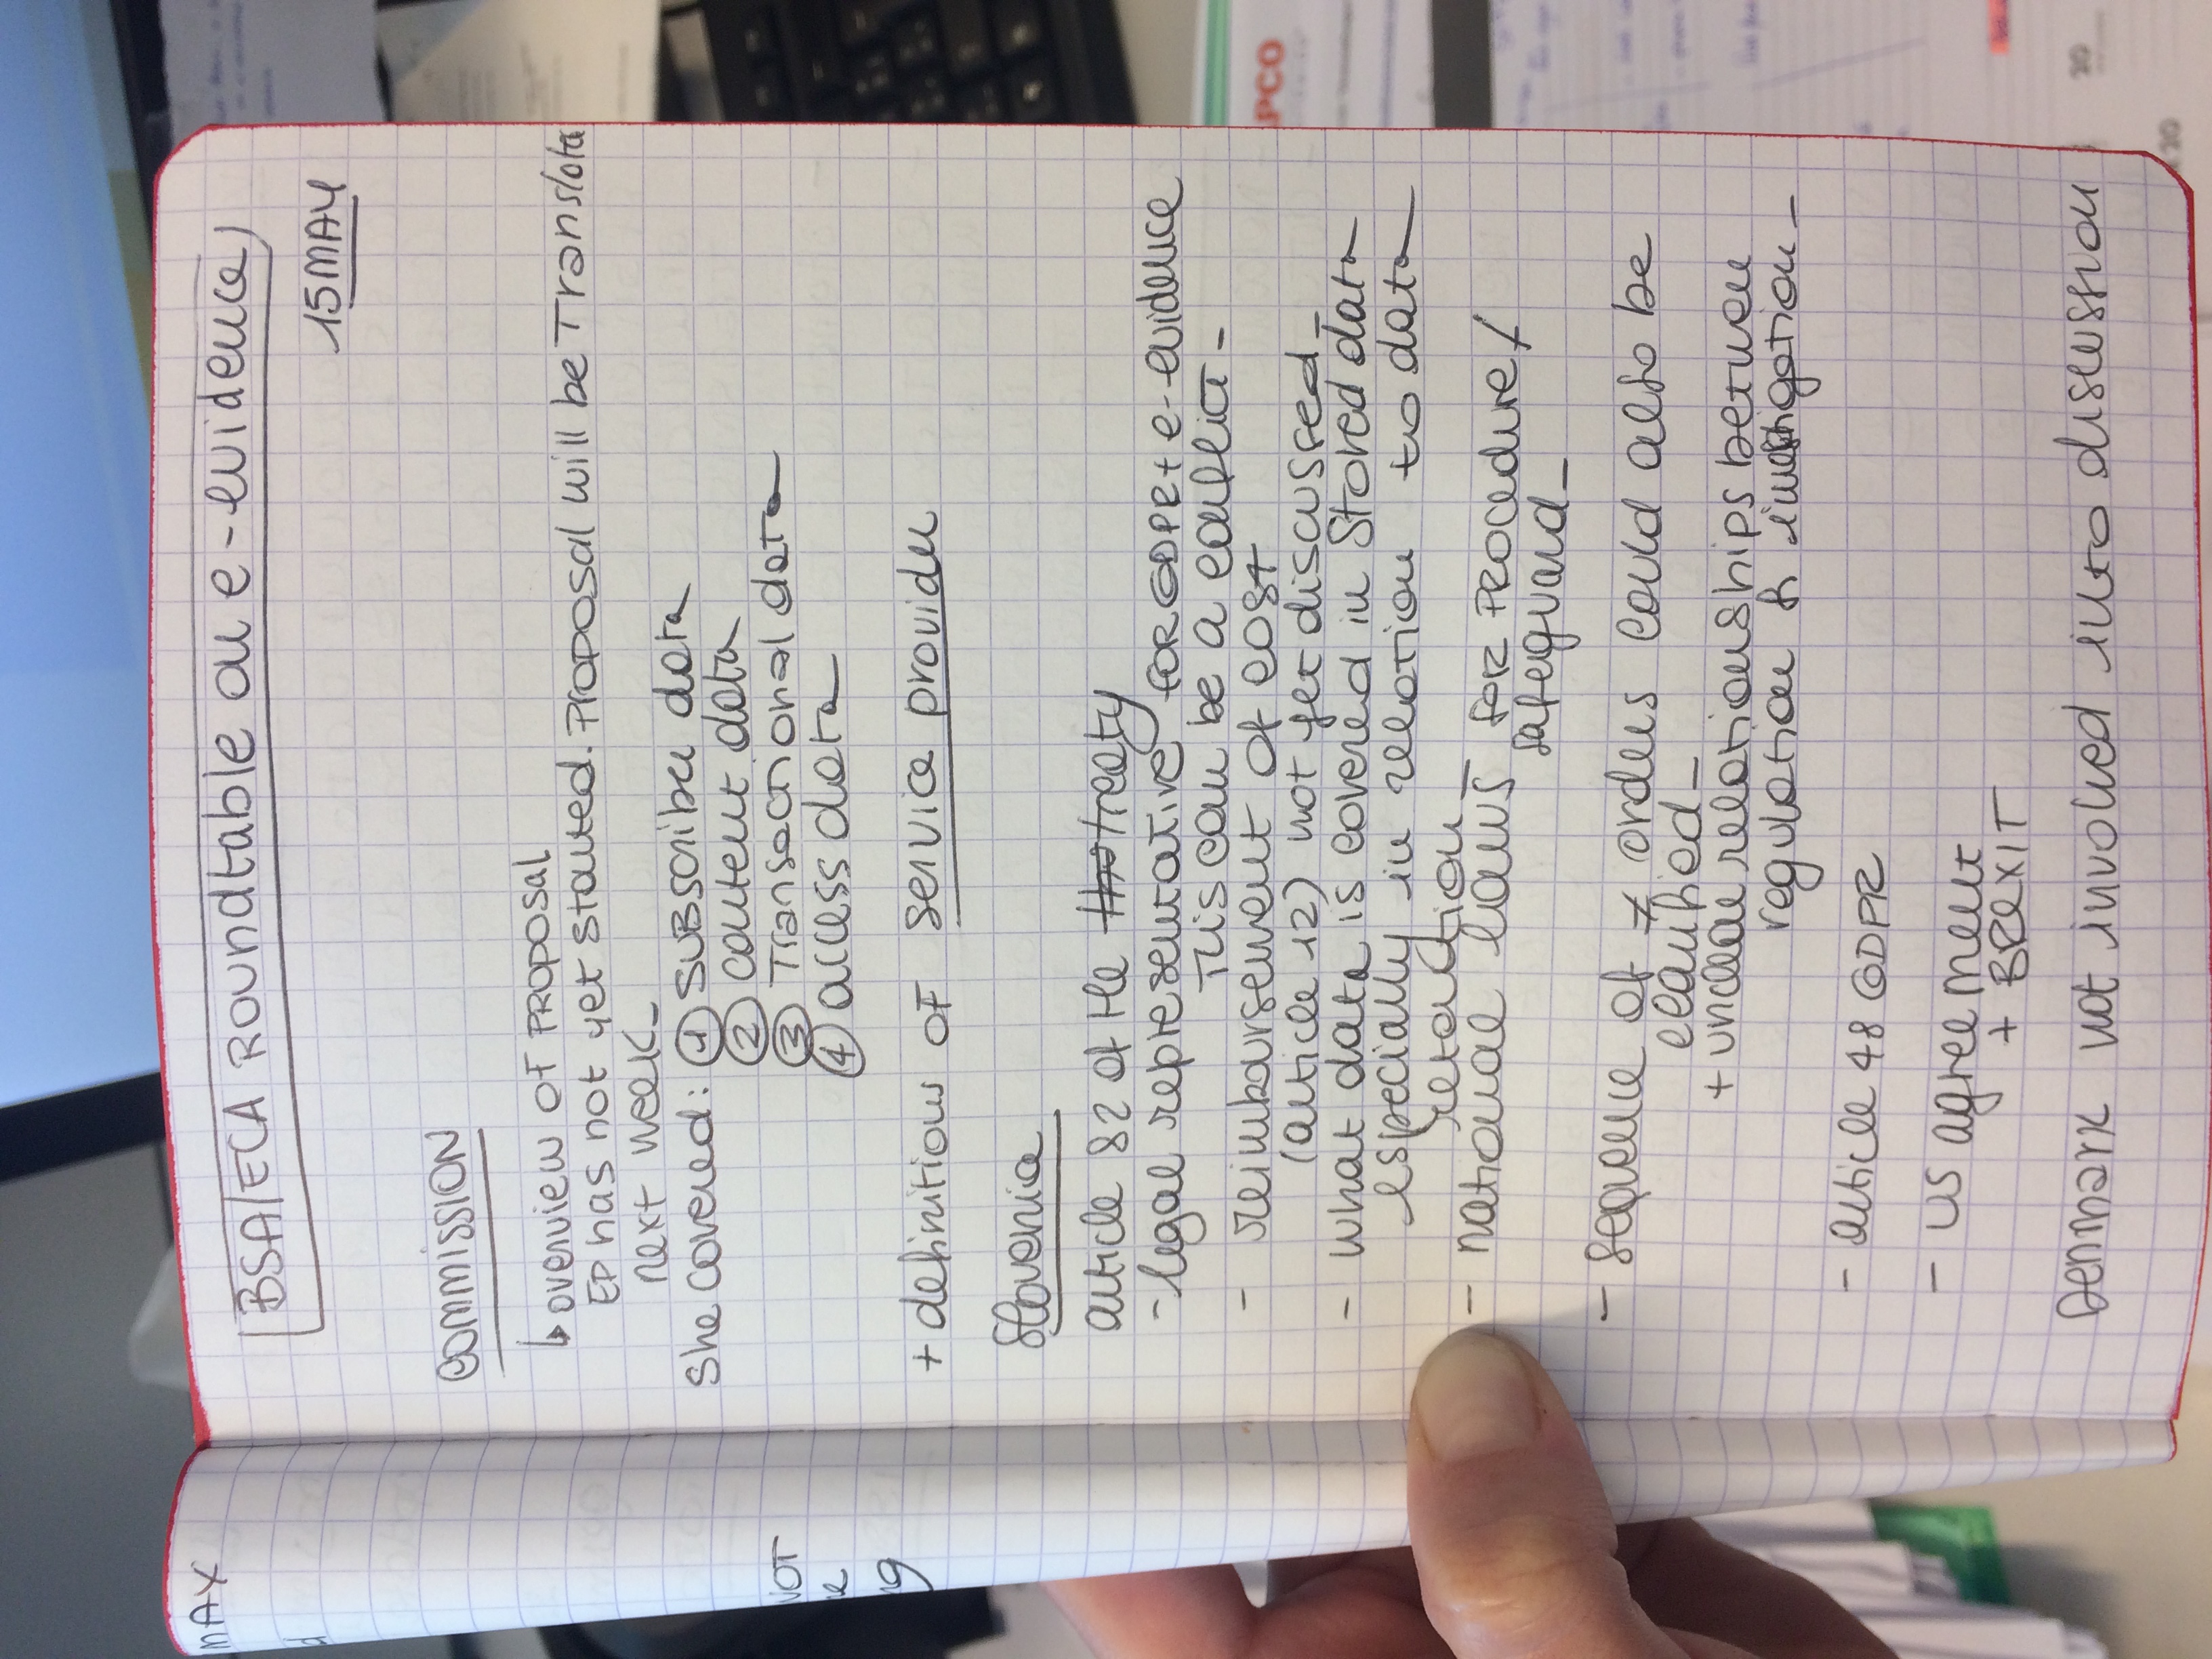 BSA/ECA ROUNDTABLE on e-evidence)
15 MAY
COMMISSION
↳ overview OF PROPOSAL
EP has not yet started. Proposal will be Translata
next week_
She covered: ① SUBSCRIBER data
② content data
③ Transactional data
④ access data
+ definition OF service provider
Slovenia
article 82 of the treaty
- legal representative FOR GDPR + e-evidence
This can be a conflict -
- reimbursement of cost
(article 12) not yet discussed_
- what data is covered in Stored data
especially in relation to data
retention
- national laws FOR PROCEDURE/
safeguard_
- sequence of ≠ orders could also be
clarified_
+ unclear relationships between
regulation &
- article 48 GDPR
- US agreement
+ BREXIT
Denmark not involved into discussion
MAX
NOT
APCO
20
20